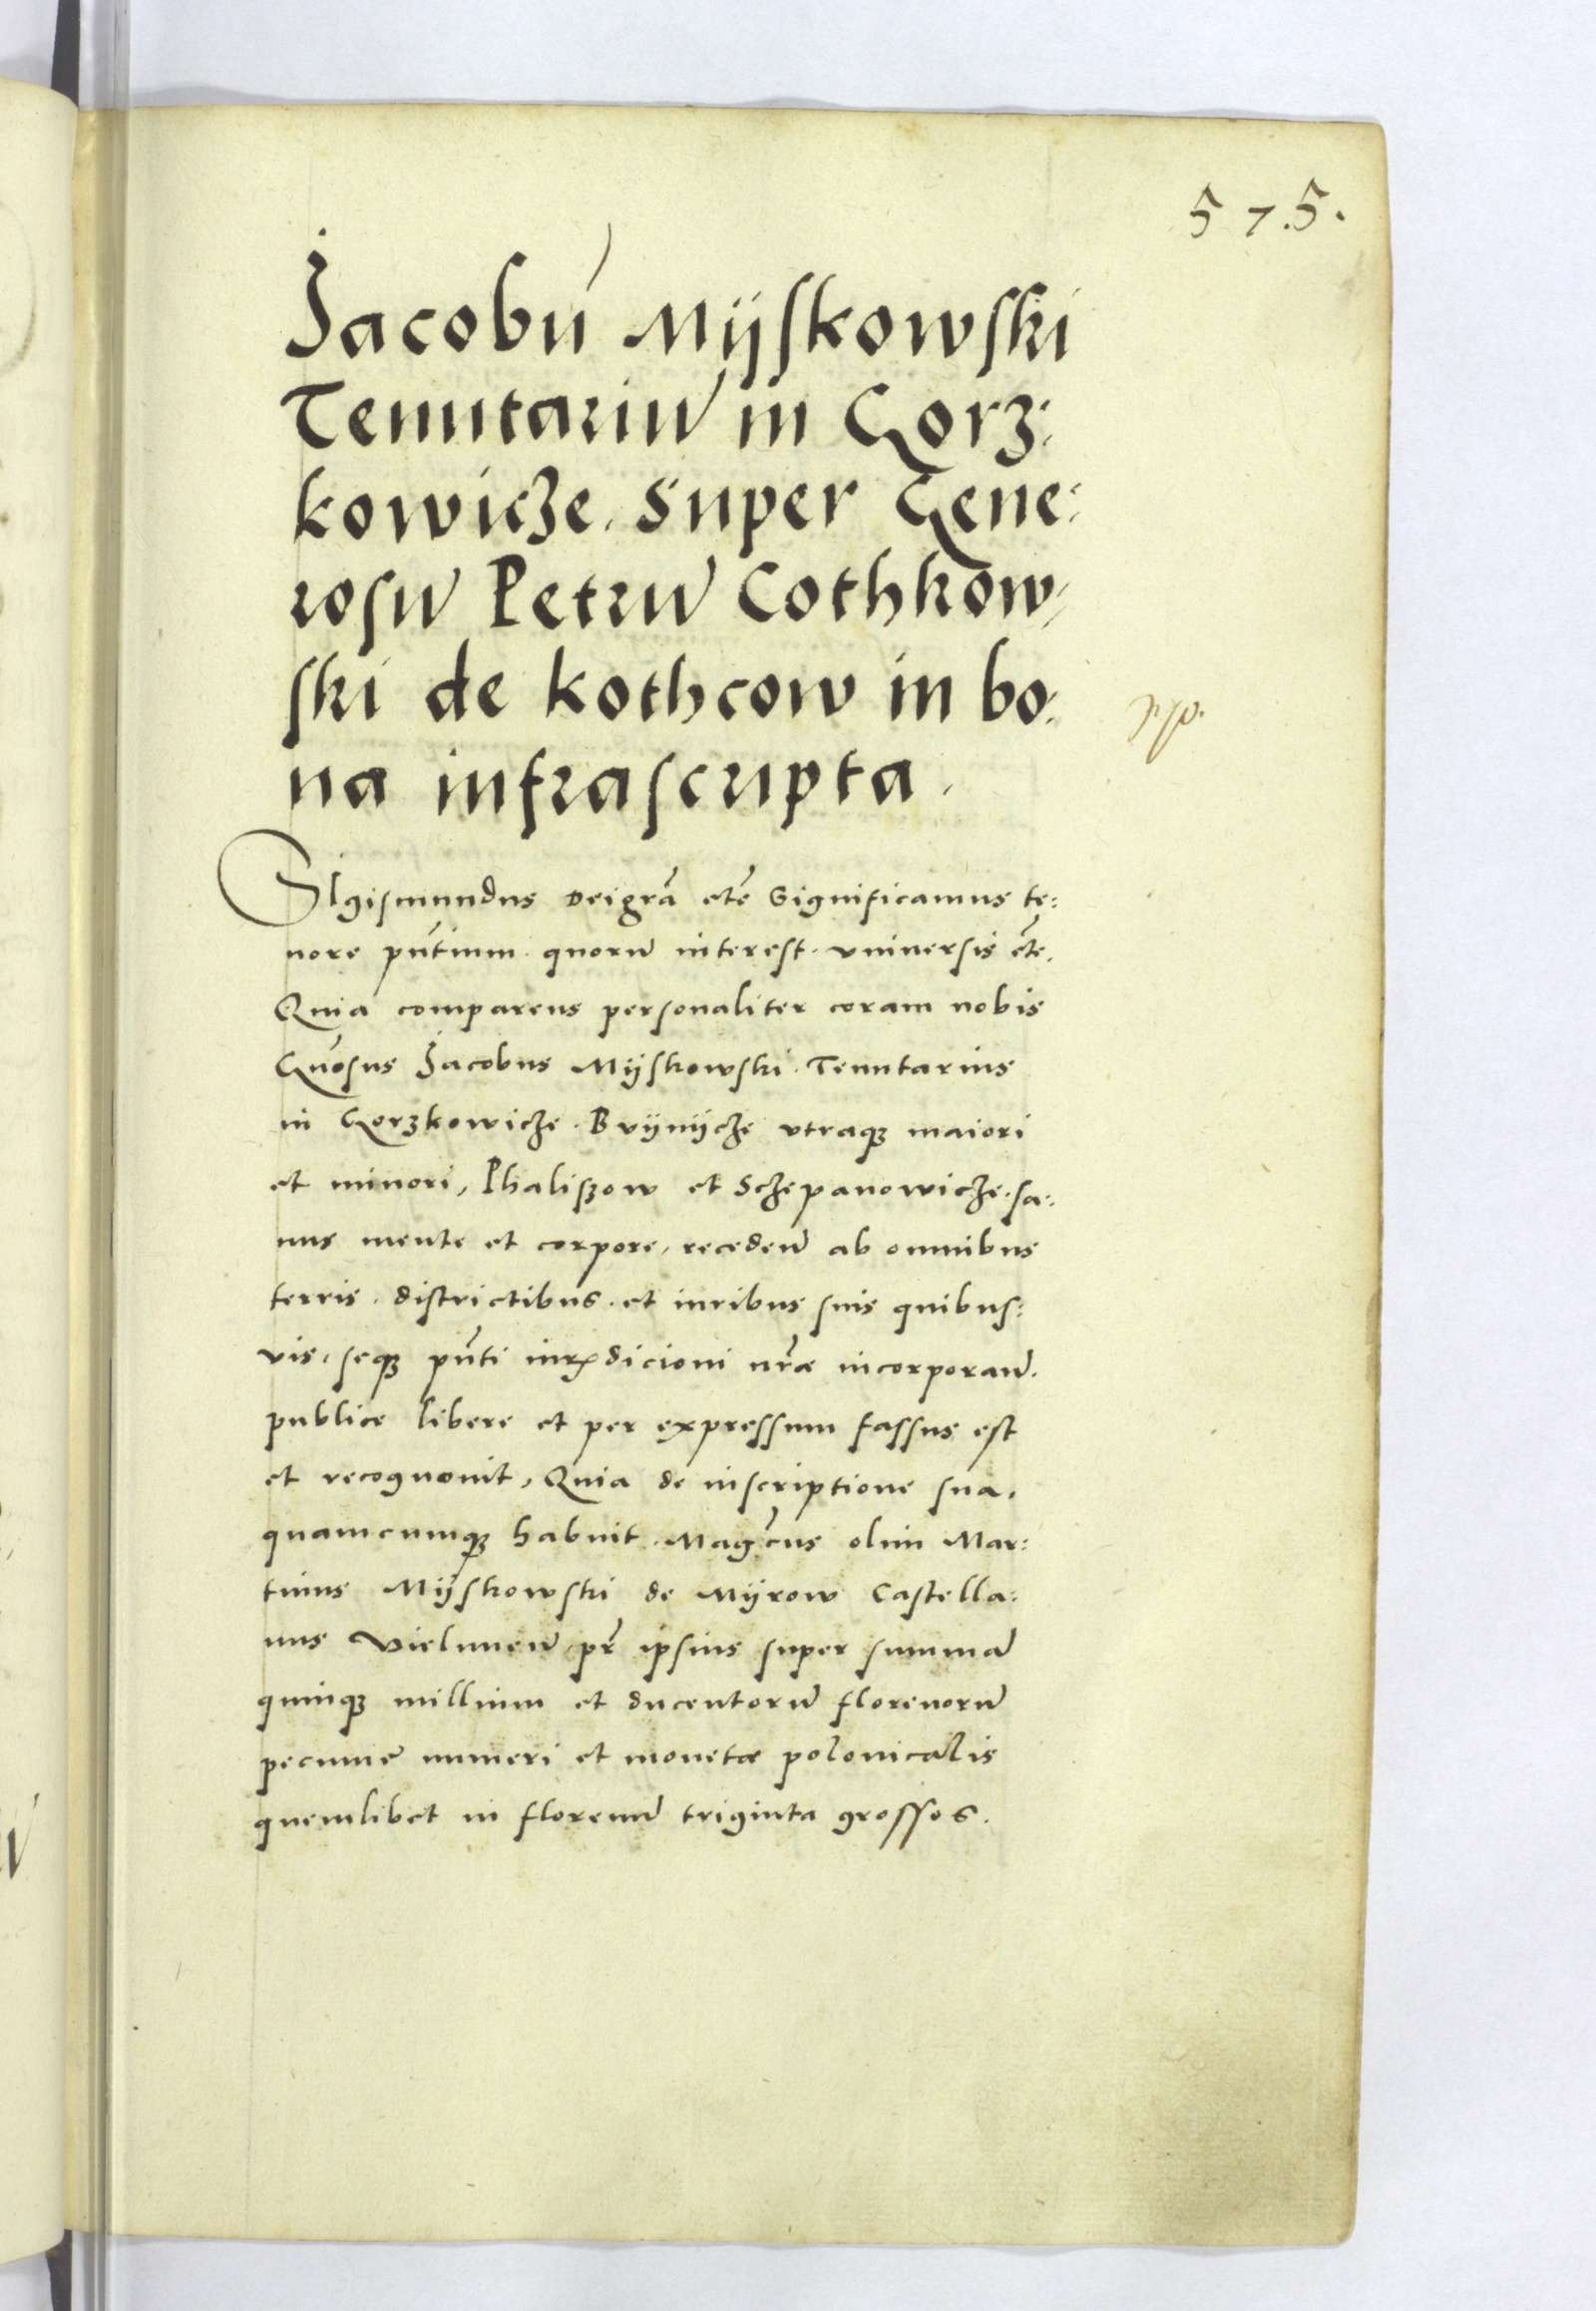 575.
Jacobũ Mÿskowski
Tenutariũ in Gorz:
kowicze. Super Gene:
rosũ Petrũ Cothkow:
ski de Kothcow in bo:
na infrascripta.
Sigismundus Dei grã etc̃ Significamus te:
nore pñtium. quorũ interest. vniuersis etc̃.
Quia comparens personaliter coram nobis
Gñosus Jacobus Mÿskowski. Tenutarius
in Gorzkowicze. Bvÿnÿcze vtraqꝫ maiori
et minori, Phaliszow et Sczepanowicze. sa:
nus mente et corpore, recedeñ ab omnibus
terris. districtibus. et iuribus suis quibus:
vis, seqꝫ pñti iurisdicioni nr̃æ incorporañ.
publice libere et per expressum fassus est
et recognouit, Quia de inscriptione sua,
quamcumqꝫ habuit. Magc̃us olim Mar:
tinus Mÿskowski de Mÿrow Castella:
nus Vieluneñ pr̃ ipsius super summã
quinqꝫ millium et ducentorũ florenorũ
pecunię numeri et monetæ polonicalis
quemlibet in florenũ triginta grossos.